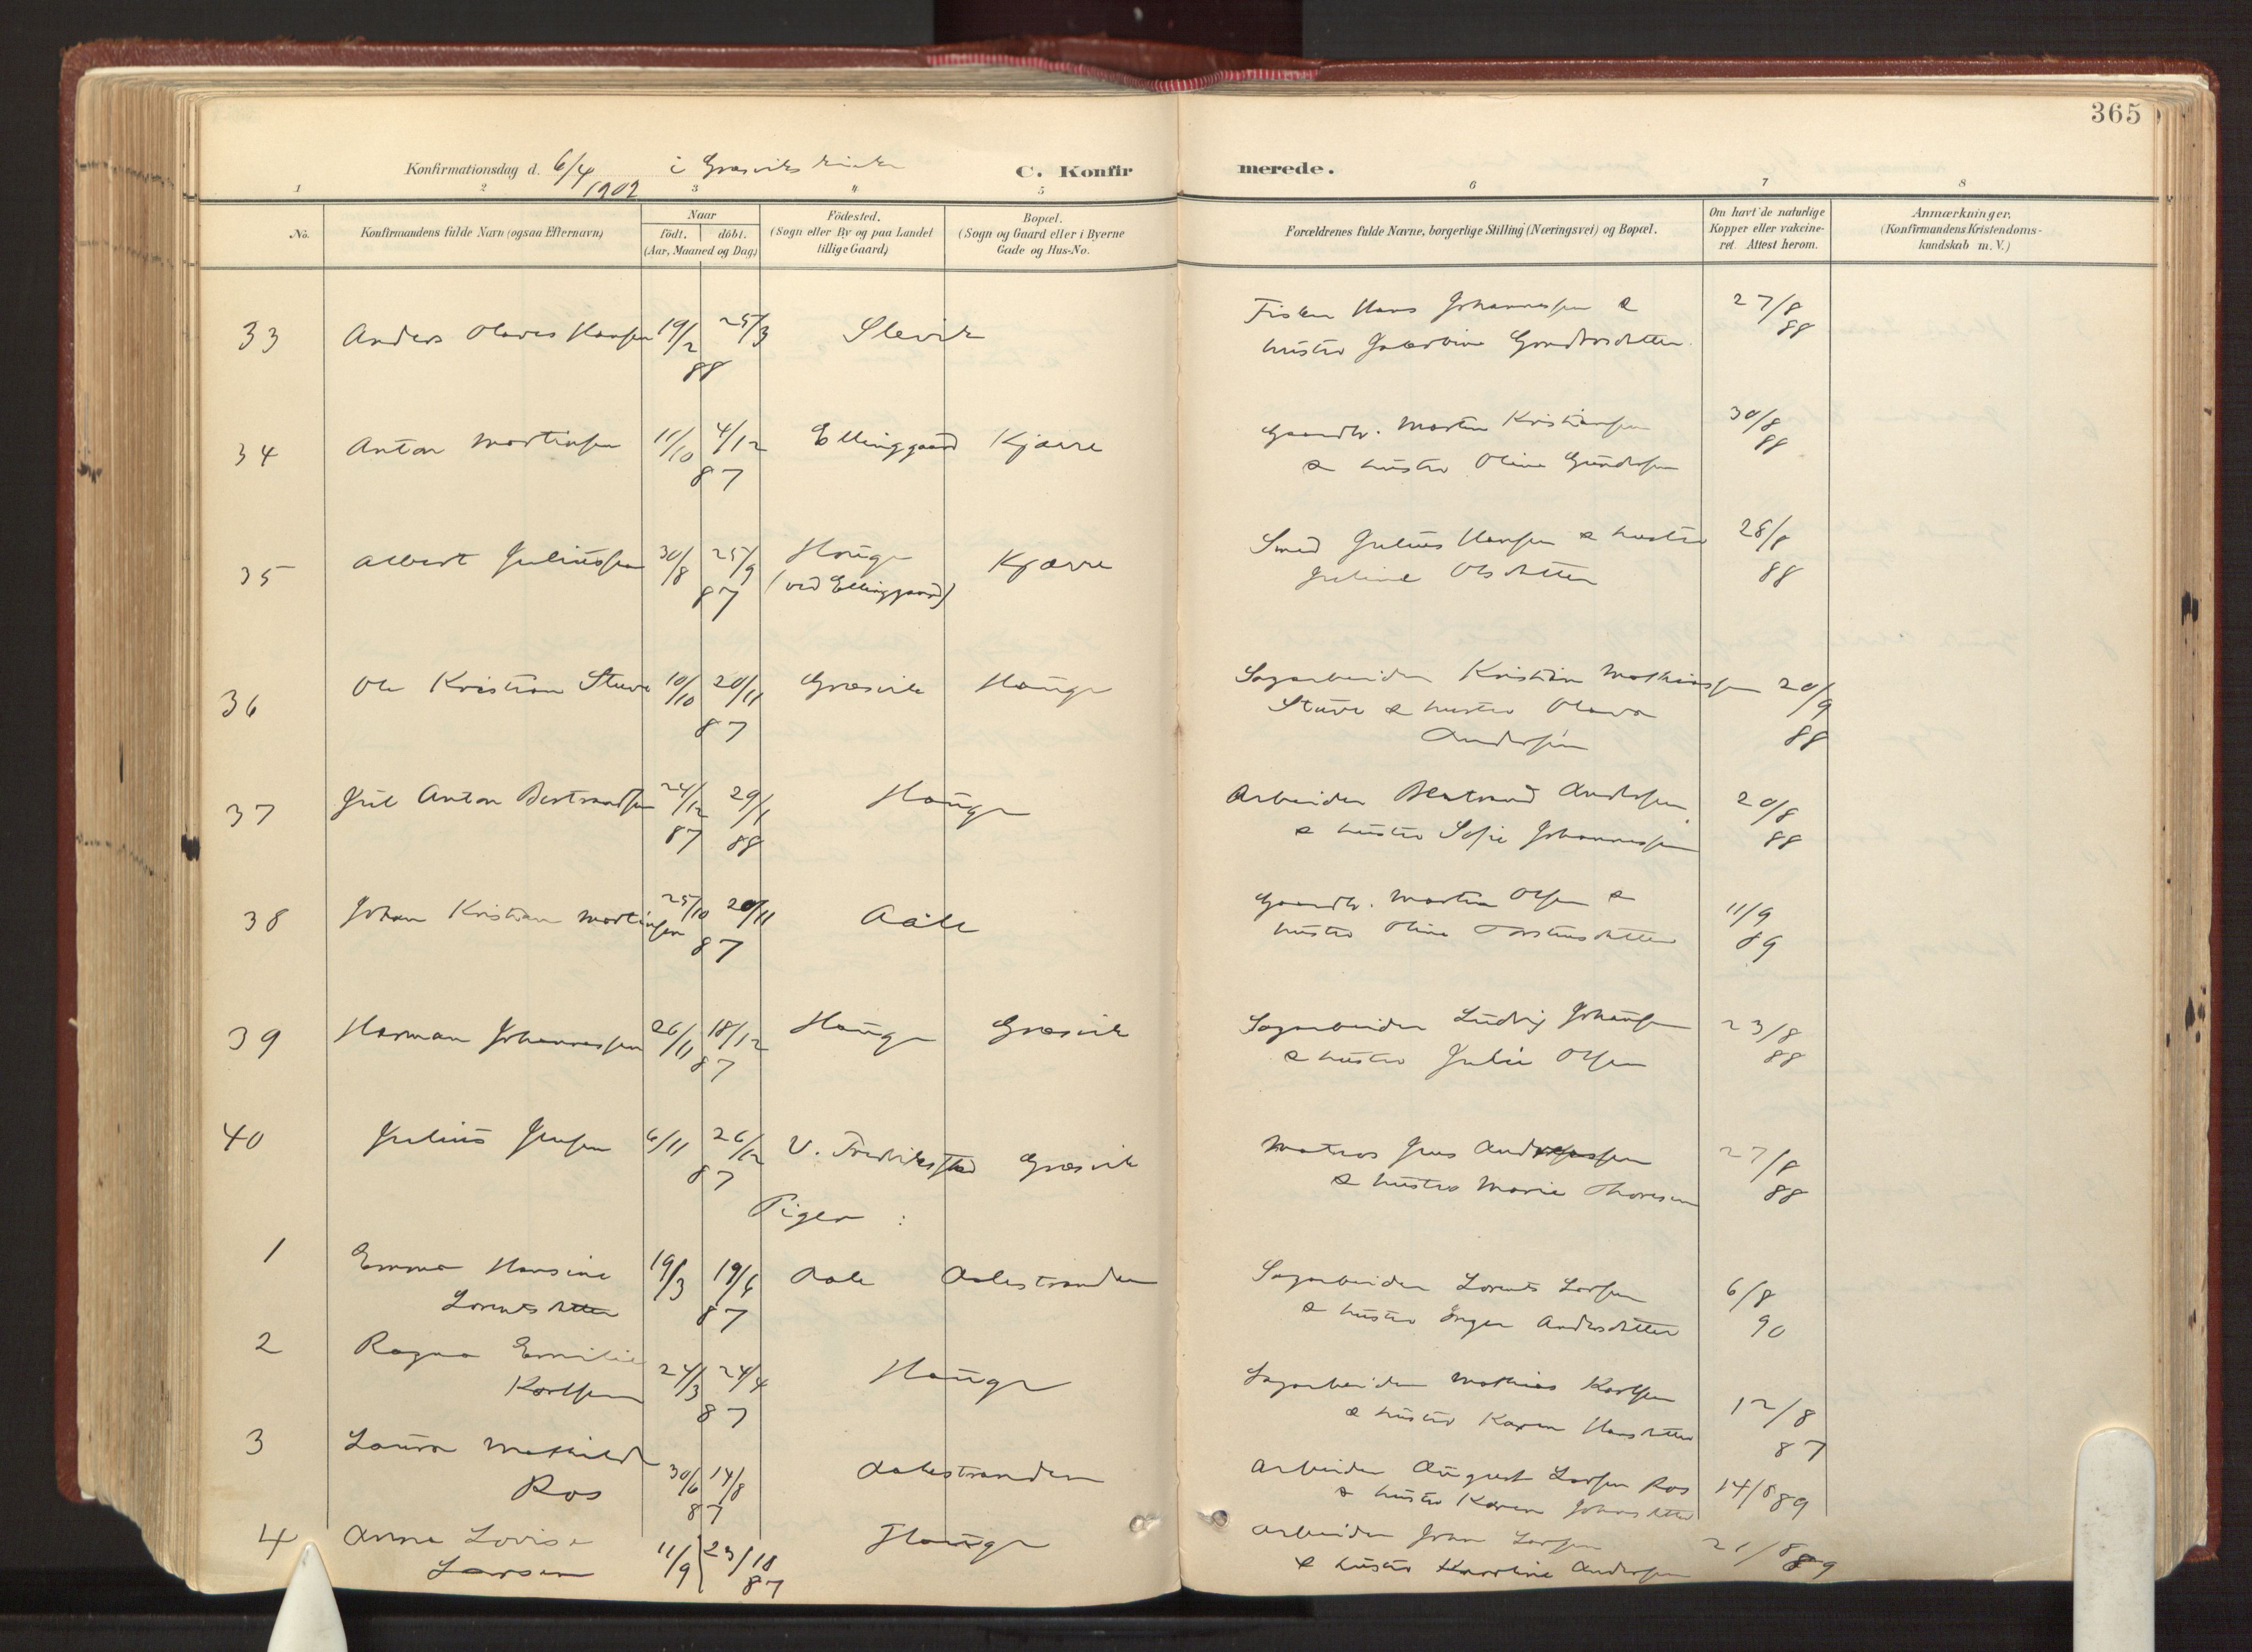 365
Konfirmationsdag d. 6/4 1902 i Græsviks kirke
C. Konfirmerede.
1 2 3 4 5 6 7 8
No.
Konfirmandens fulde Navn (ogsaa Efternavn)
Naar
födt. döbt.
(Aar, Maaned og Dag)
Födested.
(Sogn eller By og paa Landet
tillige Gaard)
Bopæl.
(Sogn og Gaard eller i Byerne
Gade og Hus-No.
Forældrenes fulde Navne, borgerlige Stilling (Næringsvei) og Bopæl.
Om havt de naturlige
Kopper eller vakcine-
ret. Attest herom.
Anmærkninger.
(Konfirmandens Kristendoms-
kundskab m. V.)
33 Anders Olaves Hansen 19/2 25/3 88 Slevik
Fisker Hans Johannessen &
hustru Gundersdatter
27/8 88
34 Anton Martinsen 11/10 4/12 87 Ellinggaard Kjærre
Gaardbr. Martin Kristiansen
& hustru Oline Gundersen
30/8 88
35 Albert Juliussen 30/8 25/9 87 Hauge
(ved Ellinggaard) Kjærre
Smed Julius Hansen & hustru
Juline Olsdatter
28/8 88
36 Ole Kristian Stuve 10/10 20/11 87 Græsvik Hauge
Sagarbeider Kristian Mathiassen
Stuve & hustru Olava
Andersen
20/9 88
37 Jul Anton Bertrandsen 24/12 87 29/1 88 Hauge
Arbeider Bertrand Andersen
& hustru Sofie Johannessen
20/8 88
38 Johan Kristian Martinsen 25/10 20/11 87 Aale
Gaardbr. Martin Olsen &
hustru Oline Torstensdatter
11/9 89
39 Herman Johannessen 26/11 18/12 87 Hauge Græsvik
Sagarbeider Ludvig Johansen
& hustru Julie Olsen
23/8 88
40 Julius Jensen 6/11 26/12 87 V. Fredrikstad Græsvik
Matros Jens Andreassen
& hustru Marie Thoresen
27/8 88
Piger :
1 Emma Hansine
Lorentsdatter 19/3 19/6 87 Aale Aalestranden
Sagarbeider Lorents Larsen
& hustru Inger Andersdatter
6/8 90
2 Ragna Emilie
Karlsen 24/3 24/4 87 Hauge
Sagarbeider Mathias Karlsen
& hustru Karen Hansdatter
12/8 87
3 Laura Mathilde
Ros 30/6 14/8 87 Aalestranden
Arbeider August Larsen Ros
& hustru Karen Johansdatter
14/8 89
4 Anna Lovise
Larsen 11/9 23/10 87 Hauge
Arbeider Johan Larsen
& hustru Karoline Andersen
21/8 89